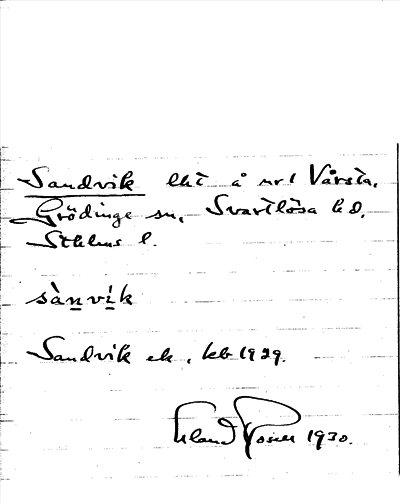 Sandvik lht å nr 1 Vårsta,
Grödinge sn, Svartlösa hd,
Sthlms l.
sànvik
Sandvik ek. kb 1929.
Erland Rosell 1930.